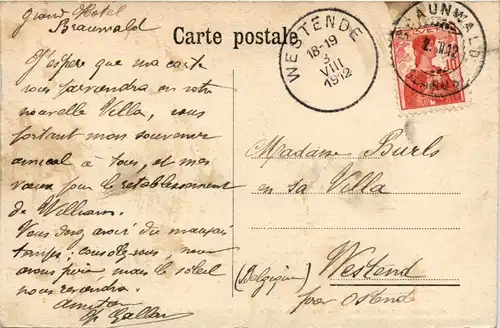 Grand Hotel
Braunwald
Carte postale
WESTENDE
18-19
3
VIII
1912
BRAUNWALD
10
J'espère que ma carte
vous parviendra en votre
nouvelle Villa, vous
portant mon souvenir
amical à tous, et mes
vœux pour le rétablissement
de William.
Vous devez avoir du mauvais
temps; consolez-vous, nous
avons pire mais le soleil
nous reviendra.
Madame Burls
en sa Villa
Westend
(Belgique)
par Ostende